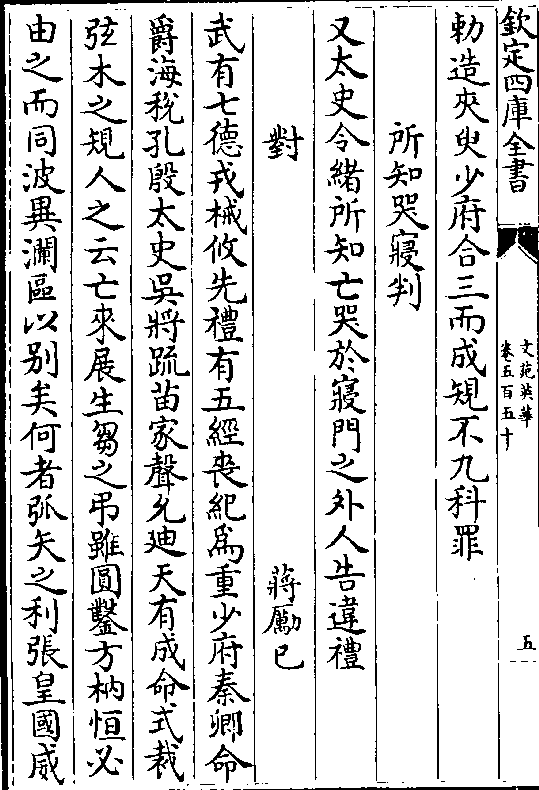 欽定四庫全書
文苑英華
卷五百五十
五
勅造夾㕰少府合三而成規不九科罪
所知哭寢判
又太史令緒所知亡哭於寢門之外人告違禮
對
蔣勵已
武有七德戎械攸先禮有五經喪紀為重少府秦卿命
爵海稅孔殷太史吳將疏苗家聲允廸天有成命式裁
弦木之規人之云亡來展生芻之弔雖圓鑿方枘恒必
由之而同波異瀾區以别矣何者弧矢之利張皇國威